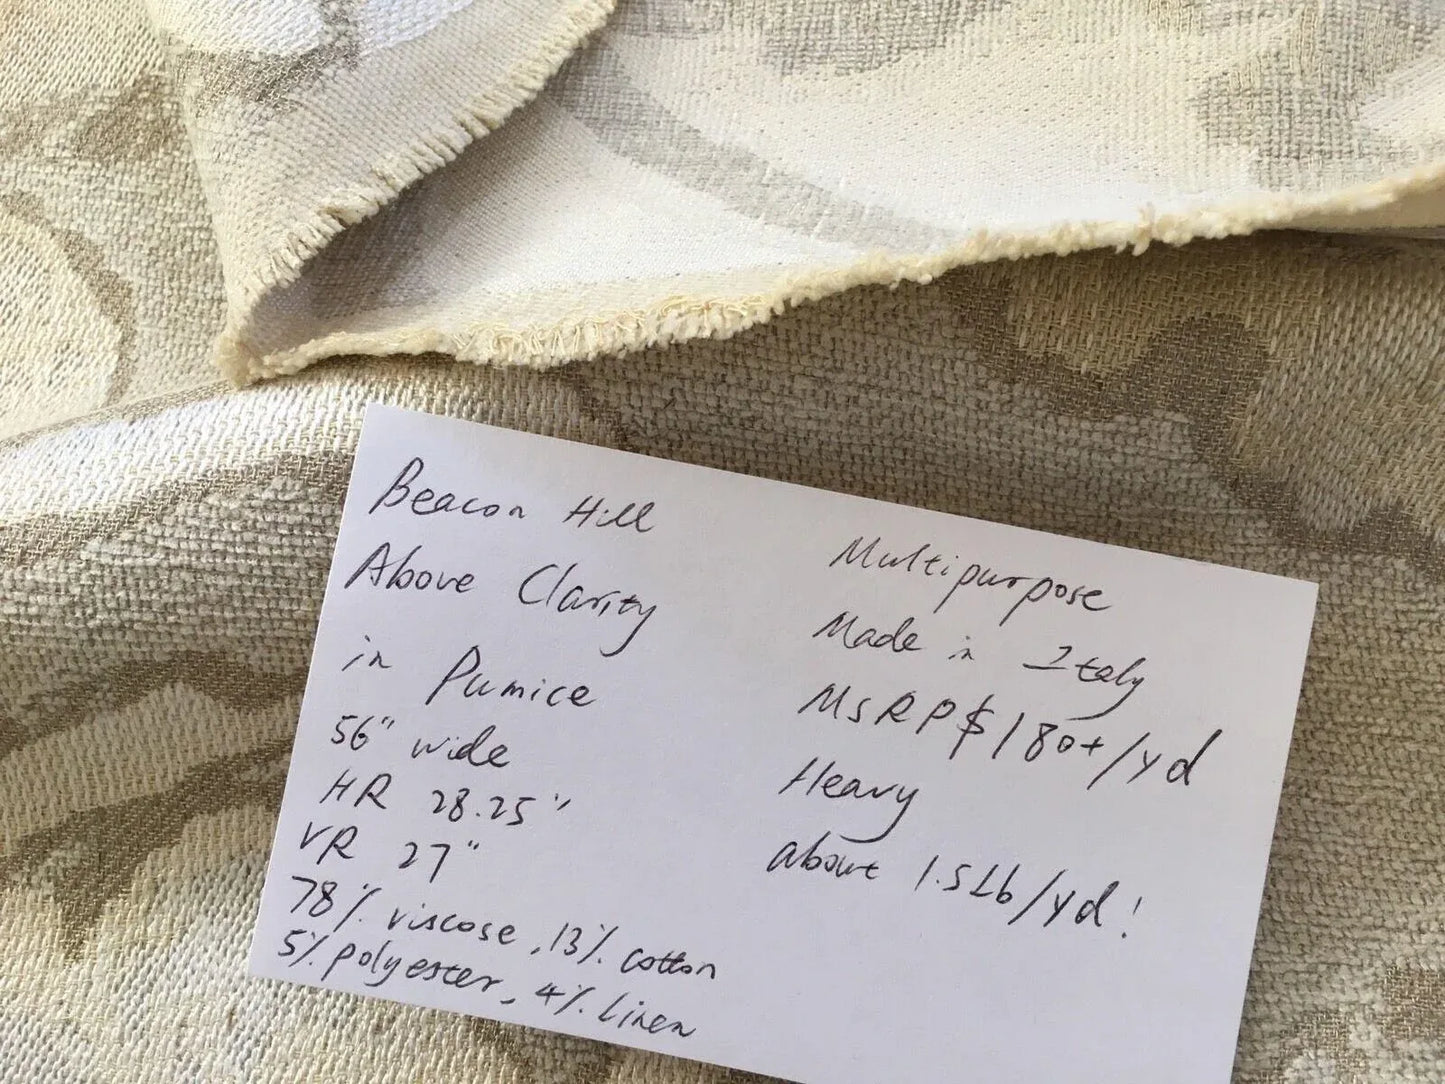 Beacon Hill
Above Clarity
in Pumice
56" wide
HR 28.25"
VR 27"
78% viscose, 13% cotton
5% polyester, 4% linen
Multipurpose
Made in Italy
MSRP $180+/yd
Heavy
about 1.5Lb/yd!